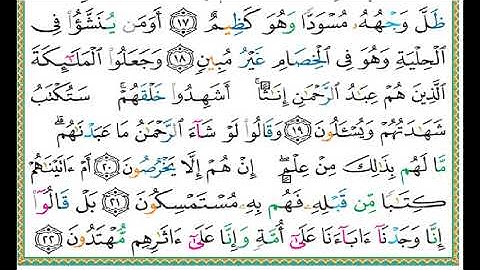 ظَلَّ وَجْهُهُۥ مُسْوَدًّا وَهُوَ كَظِيمٌ ١٧ أَوَمَن يُنَشَّؤُا۟ فِى
ٱلْحِلْيَةِ وَهُوَ فِى ٱلْخِصَامِ غَيْرُ مُبِينٍ ١٨ وَجَعَلُوا۟ ٱلْمَلَٰٓئِكَةَ
ٱلَّذِينَ هُمْ عِبَٰدُ ٱلرَّحْمَٰنِ إِنَٰثًا ۚ أَشَهِدُوا۟ خَلْقَهُمْ ۚ سَتُكْتَبُ
شَهَٰدَتُهُمْ وَيُسْـَٔلُونَ ١٩ وَقَالُوا۟ لَوْ شَآءَ ٱلرَّحْمَٰنُ مَا عَبَدْنَٰهُم ۗ
مَّا لَهُم بِذَٰلِكَ مِنْ عِلْمٍ ۖ إِنْ هُمْ إِلَّا يَخْرُصُونَ ٢٠ أَمْ ءَاتَيْنَٰهُمْ
كِتَٰبًا مِّن قَبْلِهِۦ فَهُم بِهِۦ مُسْتَمْسِكُونَ ٢١ بَلْ قَالُوٓا۟
إِنَّا وَجَدْنَآ ءَابَآءَنَا عَلَىٰٓ أُمَّةٍ وَإِنَّا عَلَىٰٓ ءَاثَٰرِهِم مُّهْتَدُونَ ٢٢